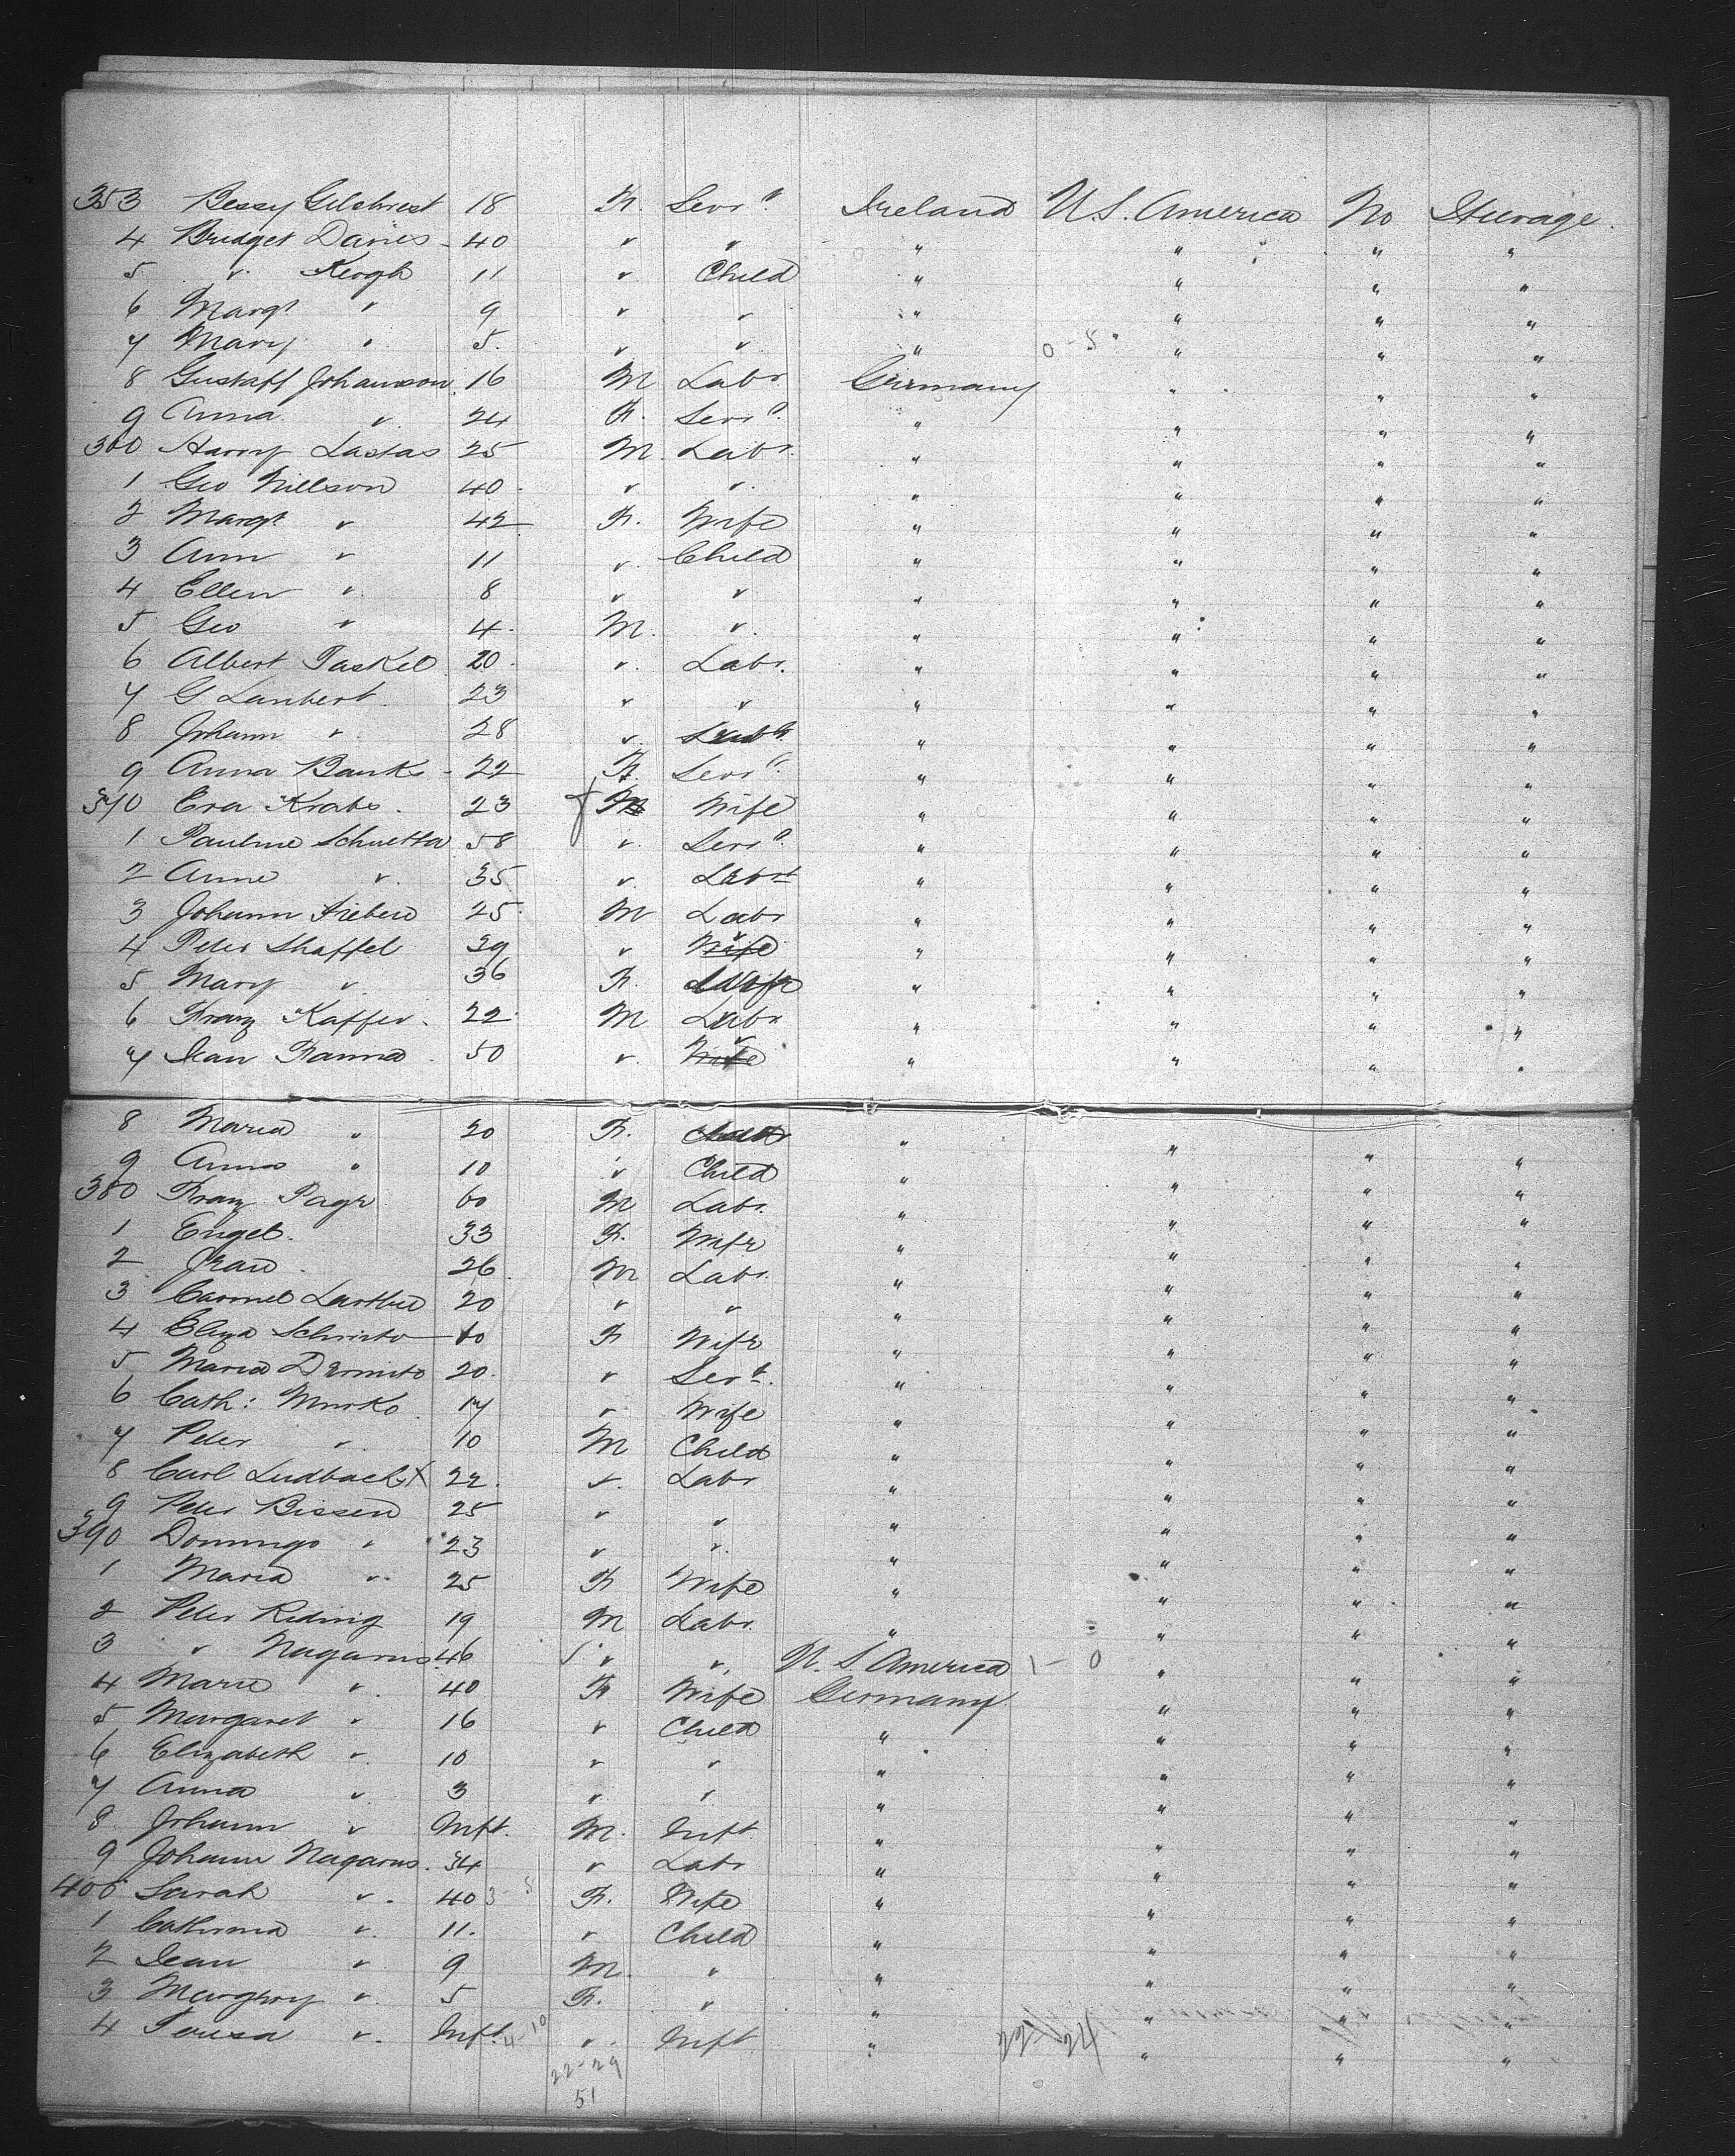 353 Bessy Gilchrist 18 F. Servt. Ireland U.S. America No Steerage.
4 Bridget Davies 40 " " " " " "
5 " Keogh 11 " Child " " " "
6 Margt " 9 " " " " " "
7 Mary " 5 " " " 0-5 " " "
8 Gustaff Johannson 16 M Labr. Germany " " "
9 Anna " 24 F. Servt. " " " "
360 Harry Lastas 25 M. Labr. " " " "
1 Geo Nillson 40 " " " " " "
2 Margt " 42 F. Wife " " " "
3 Ann " 11 " Child " " " "
4 Ellen " 8 " " " " " "
5 Geo " 4 M. " " " " "
6 Albert Taskel 20 " Labr. " " " "
7 G Lambert 23 " " " " " "
8 Johann " 28 " " " " "
9 Anna Banks 22 F. Servt. " " " "
370 Eva Krabs 23 Wife " " " "
1 Pauline Schuetta 58 " Servt. " " " "
2 Anne " 35 " " " " "
3 Johann Frieben 25 M Labr " " " "
4 Peter Shaffel 39 " Wife " " " "
5 Mary " 36 F. Wife " " " "
6 Franz Kaffer 22 M Labr " " " "
7 Jean Franna 50 " Wife " " " "
8 Maria " 20 F. " " " "
9 Anna " 10 " Child " " " "
380 Franz Page 60 M Labr. " " " "
1 Engel 33 F. Wife " " " "
2 Jean 26 M Labr. " " " "
3 20 " " " " " "
4 Eliza F Wife " " " "
5 Maria 20 " Servt. " " " "
6 Cath: Mursko 17 " Wife " " " "
7 Peter " 10 M Child " " " "
8 Carl Ludbach X 22 " Labr " " " "
9 Peter Bissen 25 " " " " " "
390 Domingo " 23 " " " " " "
1 Maria " 25 F Wife " " " "
2 Peter Riding 19 M Labr. " " " "
3 " Nagarus 46 " " U.S. America 1-0 " " "
4 Marie " 40 F Wife Germany " " "
5 Margaret " 16 " Child " " " "
6 Elizabeth " 10 " " " " " "
7 Anna " 3 " " " " " "
8 Johann " Inft. M. Inft " " " "
9 Johann Nagarus 34 " Labr " " " "
400 Sarah " 40 3-5 F. Wife " " " "
1 Catherina " 11. " Child " " " "
2 Jean " 9 M. " " " " "
3 Margery " 5 F. " " " " "
4 Teresa " Inft. 4-10 " Inft " " " "
22-29
51